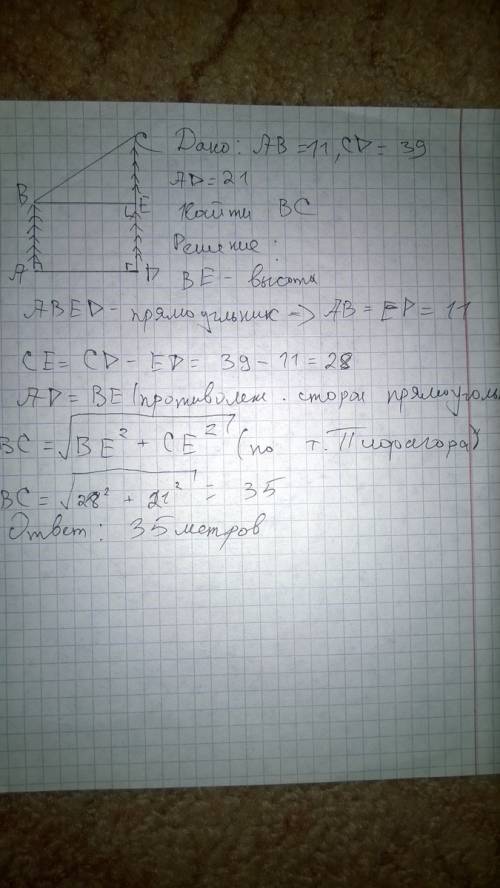 C
B
E
A
D
Дано: AB = 11, CD = 39
AD = 21
Найти BC
Решение:
BE - высота
ABED - прямоугольник => AB = ED = 11
CE = CD - ED = 39 - 11 = 28
AD = BE (противолеж. сторон прямоугол
BC = √BE² + CE² (по т. Пифагора)
BC = √28² + 21² = 35
Ответ: 35 метров